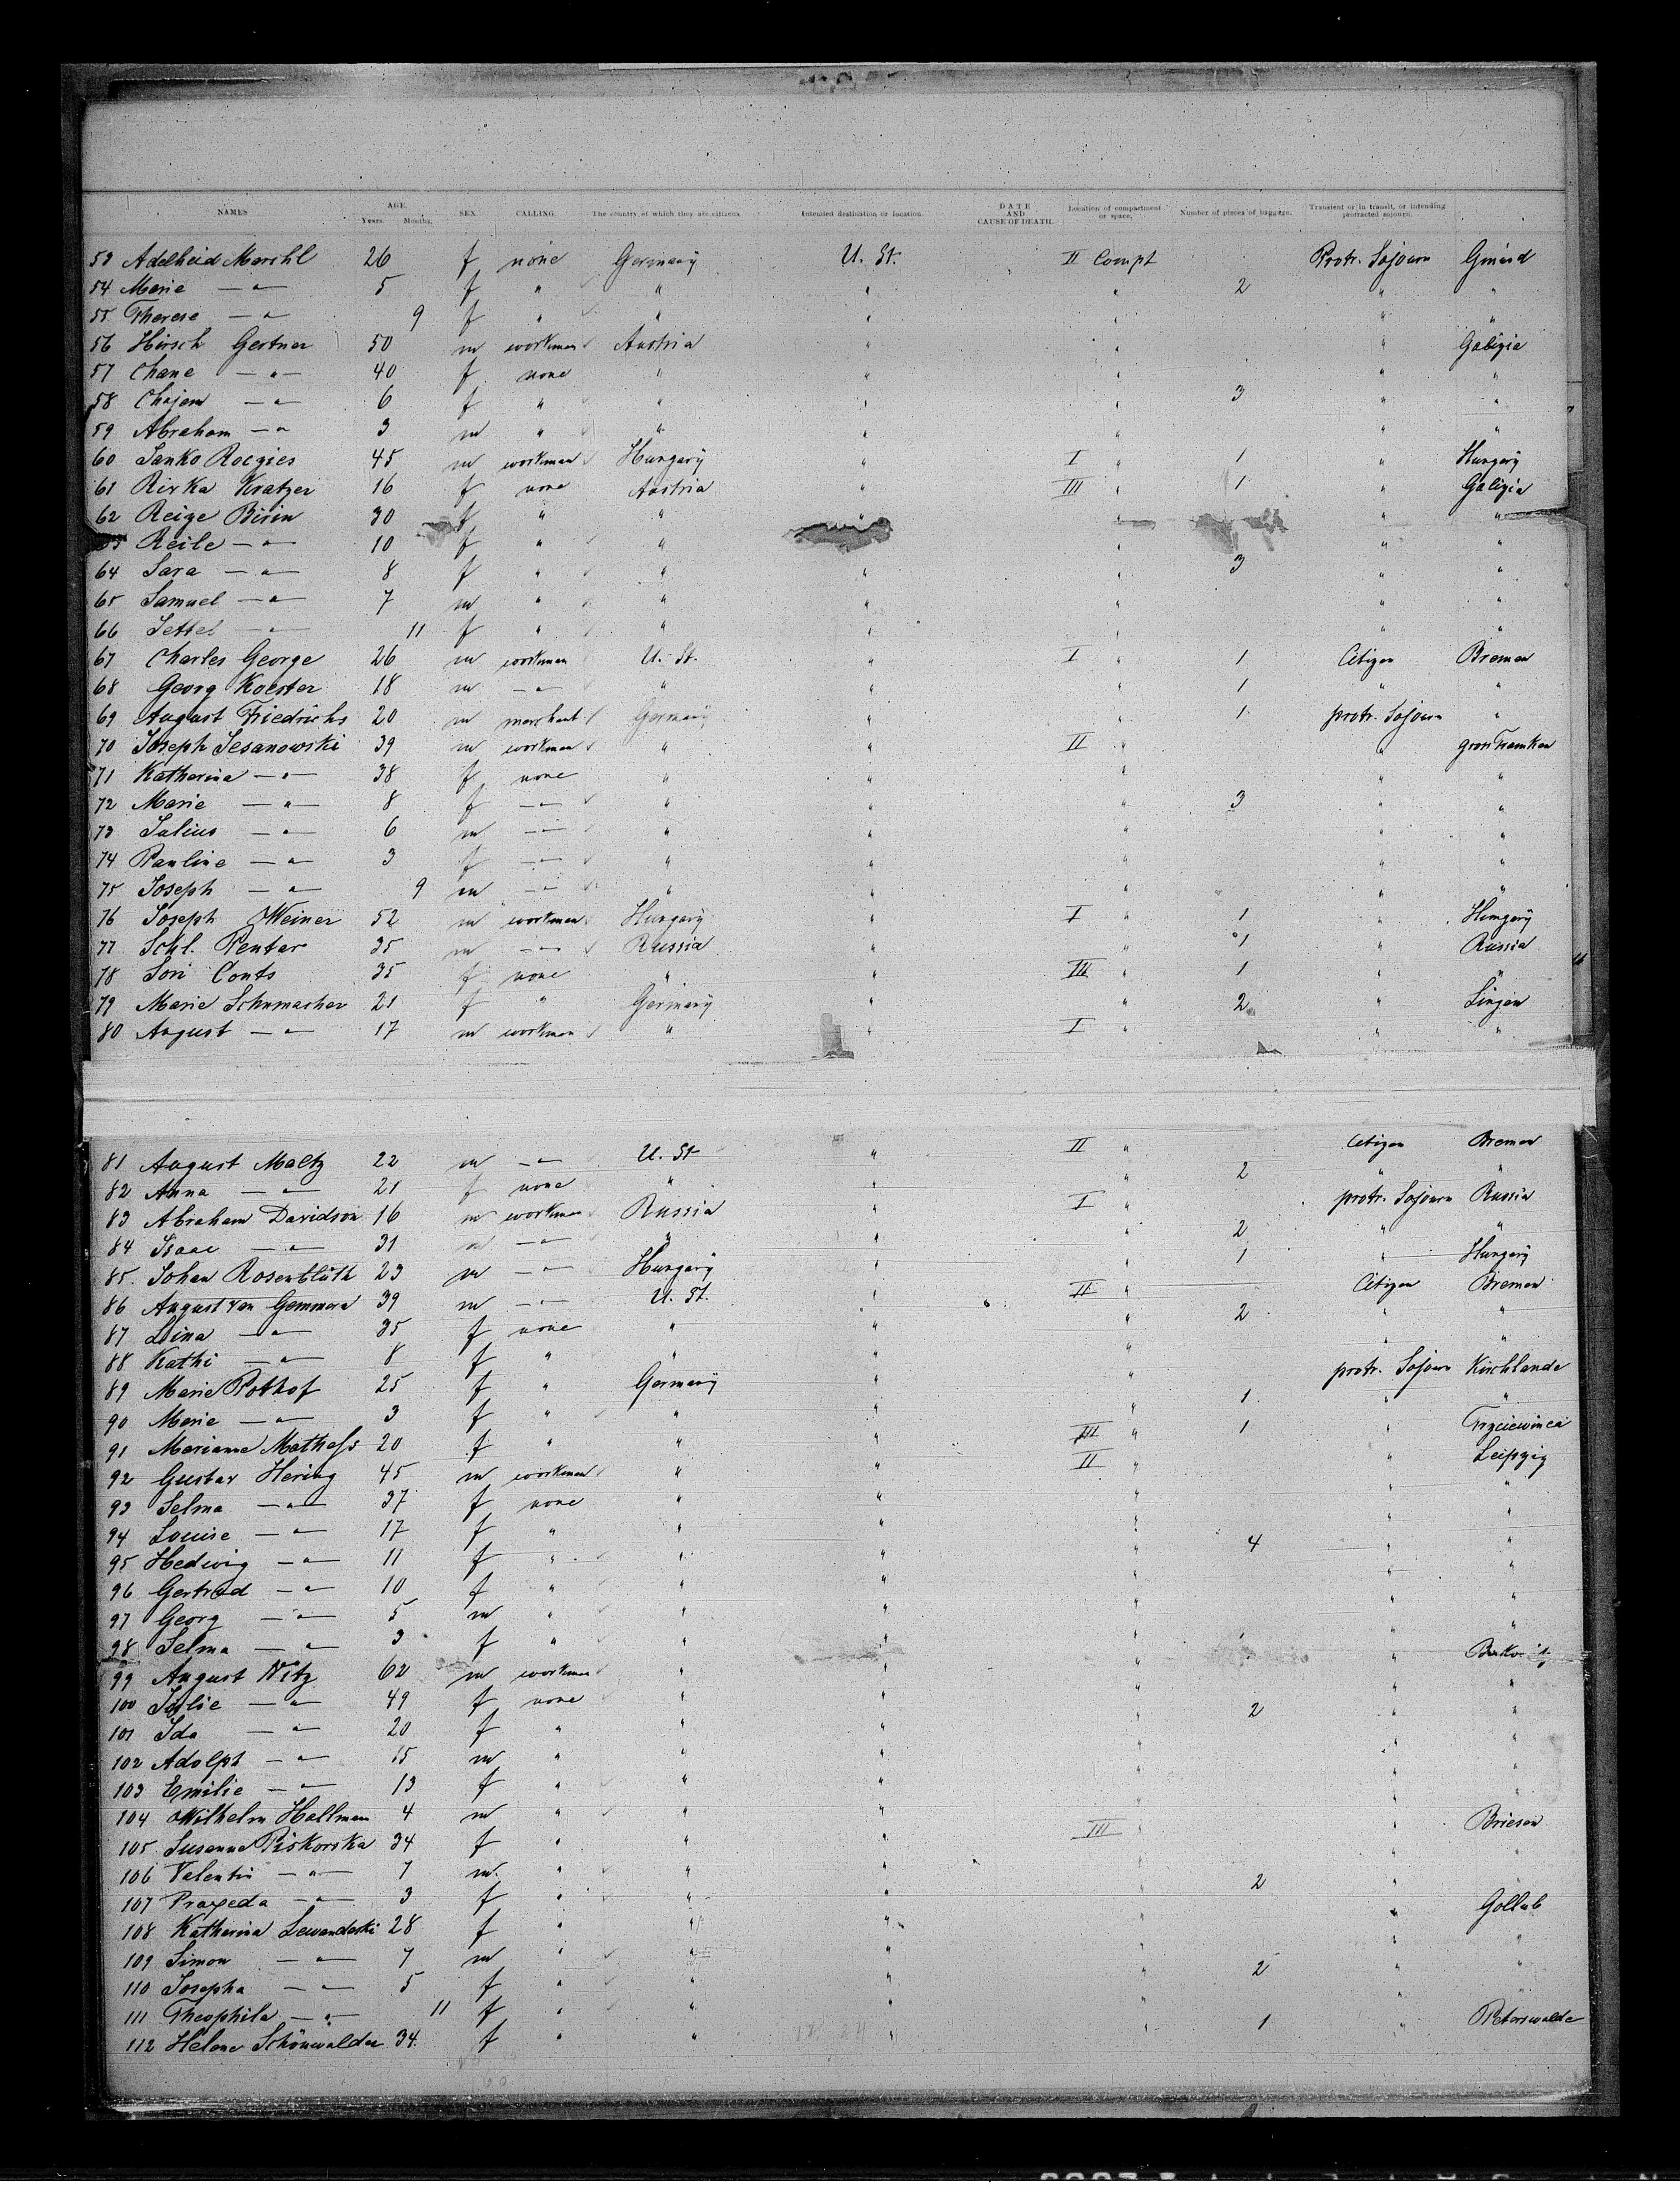 NAMES AGE. Years. Months. SEX. CALLING. The country of which they are citizens. Intended destination or location. DATE AND CAUSE OF DEATH. Location of compartment or space. Number of pieces of baggage. Transient or in transit, or intending protracted sojourn.
53 Adelheid Marchl 26 f none Germany U. St. II Compt Protr. Sojourn Gmünd
54 Marie — " — 5 f " " " " 2 " "
55 Therese — " 9 f " " " " " "
56 Hirsch Gertner 50 m workman Austria " " " Galizia
57 Chane — " — 40 f none " " " " "
58 Chajem — " 6 f " " " " 3 " "
59 Abraham — " 3 m " " " " " "
60 Janko 45 m workman Hungary " I " 1 " Hungary
61 Rivka Kratzer 16 f none Austria " III " 1 " Galizia
62 Reize Birin 30 f " " " " " "
Reile — " — 10 f " " " " "
64 Sara — " — 8 f " " " " 3 " "
65 Samuel — " — 7 m " " " " " "
66 Jettel — " — 11 f " " " " " "
67 Charles George 26 m workman U. St. " I " 1 Citizen Bremen
68 Georg Koester 18 m — " — " " " 1 " "
69 August Friedrichs 20 m merchant Germany " " 1 protr. Sojourn "
70 Joseph Jesanowski 39 m workman " " II " "
71 Katherina — " — 38 f none " " " "
72 Marie — " — 8 f — " — " " " 3 " "
73 Julius — " — 6 m — " — " " " "
74 Pauline — " — 3 f — " — " " " " "
75 Joseph — " — 9 m — " — " " " "
76 Joseph Weiner 52 m workman Hungary " I " 1 " Hungary
77 Schl. Pentar 35 m — " — Russia " " 1 Russia
78 Sori Conts 35 f none " " III " 1 " "
79 Marie Schumacher 21 f " Germany " " 2 " Lingen
80 August — " — 17 m workman " " I " " "
81 August Maltz 22 m — " — U. St " II " Citizen Bremen
82 Anna — " — 21 f none " " " 2 " "
83 Abraham Davidson 16 m workman Russia " I " protr. Sojourn Russia
84 Isaac — " — 31 m — " — " " " 2 " "
85. Johan Rosenblüth 23 m — " — Hungary " " 1 " Hungary
86 August van Gemmera 39 m — " — U. St. " II " Citizen Bremen
87 Lina — " — 35 f none " " " 2 " "
88 Kathi — " — 8 f " " " " " "
89 Marie Pothof 25 f " Germany " " protr. Sojourn Kirchlande
90 Marie — " — 3 f " " " " 1 " "
91 Marianne 20 f " " " III " 1 "
92 Gustav Hering 45 m workman " " II " " Leipzig
93 Selma — " — 37 f none " " " " "
94 Louise — " — 17 f " " " " " "
95 Hedwig — " — 11 f " " " " 4 " "
96 Gertrud — " — 10 f " " " " " "
97 Georg — " — 5 m " " " " " "
98 Selma — " — 3 f " " " " "
99 August Nitz 62 m workman " " " "
100 Julie — " — 49 f none " " " "
101 Ida — " — 20 f " " " " 2 " "
102 Adolph — " — 15 m " " " " " "
103 Emilie — " — 13 f " " " " " "
104 Wilhelm Hallman 4 m " " " " " "
105. Susanna Piskorska 34 f " " " III " " Briesen
106 Valentin — " — 7 m. " " " " "
107 Praxeda — " — 3 f " " " " 2 "
108 Katherina Lewandoski 28 f " " " " " Gollub
109 Simon — " — 7 m " " " " " "
110 Josepha — " — 5 f " " " " 2 " "
111 Theophila — " — 11 f " " " "
112 Helene Schönwalder 34. f " " " " 1 " Peterswalde